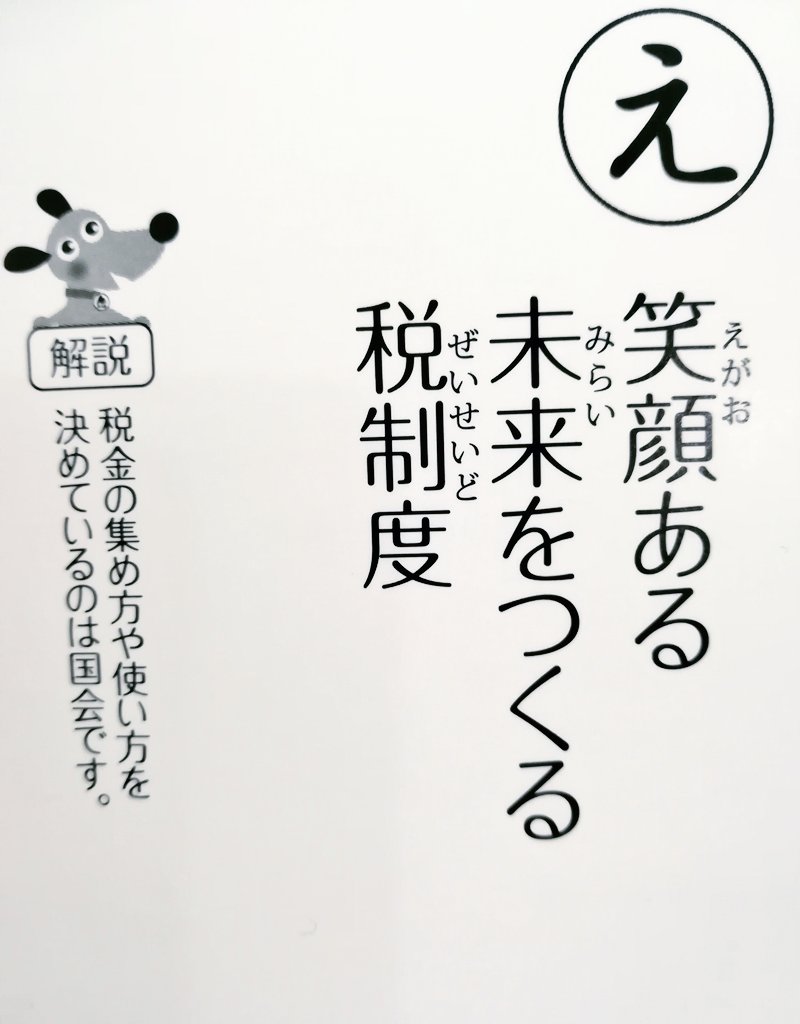 え
笑顔ある
えがお
未来をつくる
みらい
税制度
ぜいせいど
解説
税金の集め方や使い方を
決めているのは国会です。